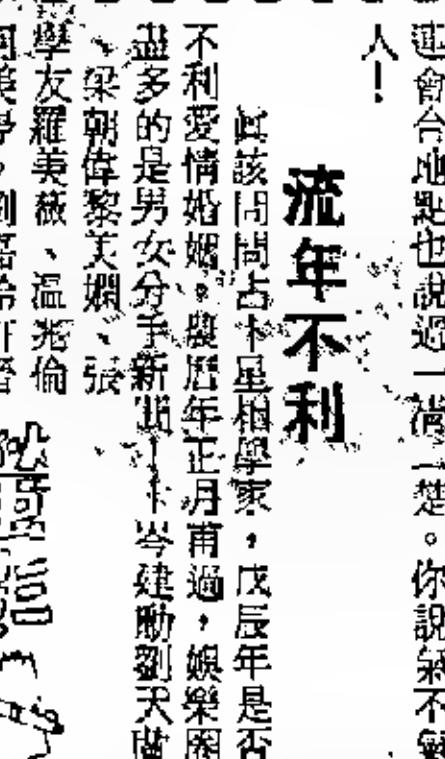 會台地點也說過一清二楚。你說氣不
人！
流年不利
真該問問占卜星相學家，戊辰年是否
不利愛情婚姻。農曆年正月甫過，娛樂圈
盡多的是男女分手新聞——岑建勳劉天蘭
、梁朝偉黎美嫻、張
學友羅美薇、溫兆倫